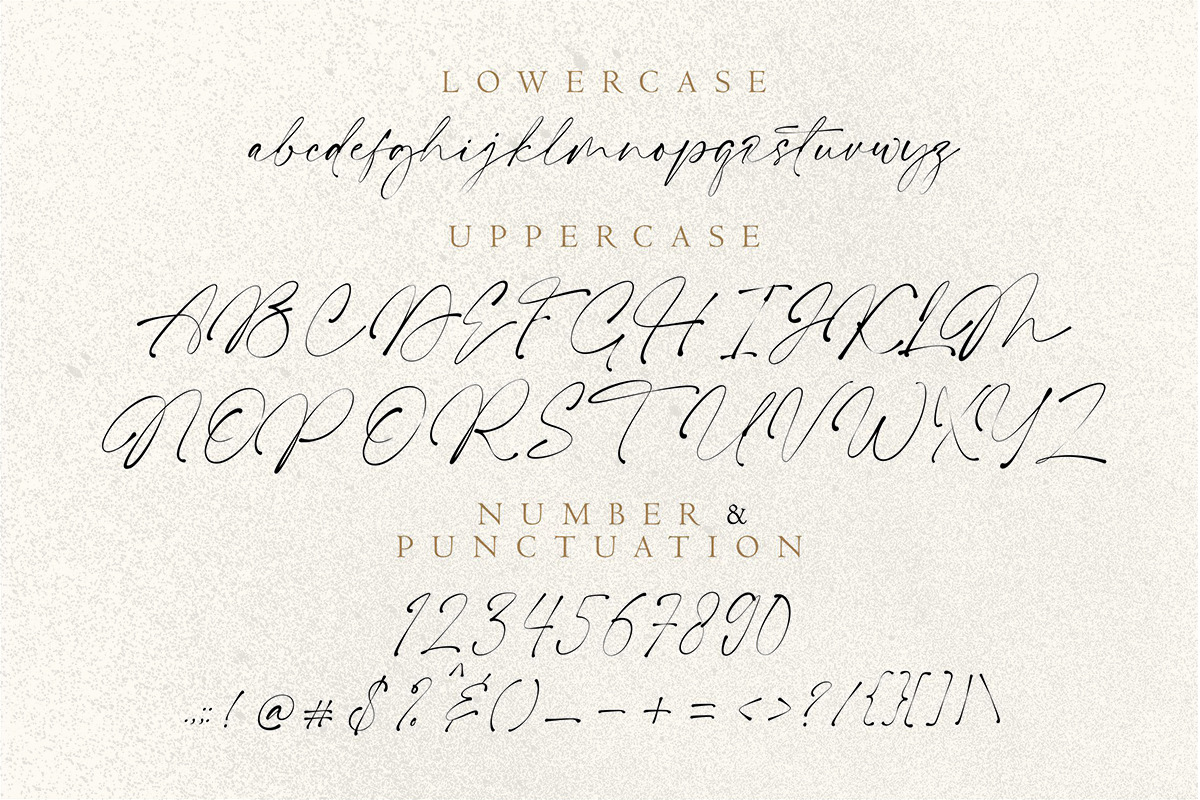 LOWERCASE
abcdefghijklmnopqrstuvwyz
UPPERCASE
ABCDEFGHIJKLM
NOPQRSTUVWXYZ
NUMBER &
PUNCTUATION
1234567890
.,;:! @#$%^&()_-+=<>?/{}[]|\